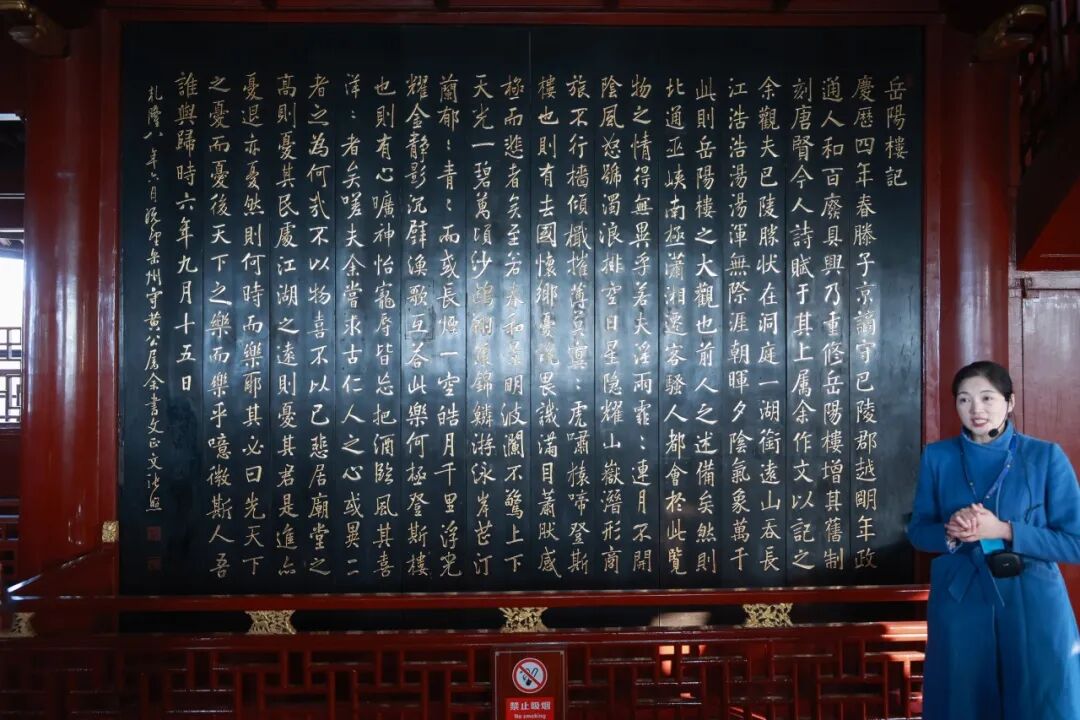 岳陽樓記
慶曆四年春滕子京謫守巴陵郡越眀年政
通人和百廢具興乃重修岳陽樓增其舊制
刻唐賢今人詩賦于其上属余作文以記之
余觀夫巴陵勝狀在洞庭一湖銜遠山吞長
江浩浩湯湯渾無際涯朝暉夕陰氣象萬千
此則岳陽樓之大觀也前人之述備矣然則
北通巫峽南極瀟湘遷客騷人都會於此覽
物之情得無異乎若夫淫雨霏：連月不開
陰風怒號濁浪排空日星隱耀山嶽潛形商
旅不行檣傾檝摧薄莫冥：虎嘯猿啼登斯
樓也則有去國懷鄉憂讒畏譏滿目蕭然感
極而悲者矣至若春和景明波瀾不驚上下
天光一碧萬頃沙鷗翔集錦鱗游泳岸芷汀
蘭郁：青：而或長煙一空皓月千里浮光
耀金靜影沉璧漁歌互答此樂何極登斯樓
也則有心曠神怡寵辱皆忘把酒臨風其喜
洋：者矣嗟夫余嘗求古仁人之心或異二
者之為何哉不以物喜不以己悲居廟堂之
高則憂其民處江湖之遠則憂其君是進亦
憂退亦憂然則何時而樂耶其必曰先天下
之憂而憂後天下之樂而樂乎噫微斯人吾
誰與歸時六年九月十五日
乾隆八年六月州守黃公属余書文正文張照
禁止吸烟
No smoking